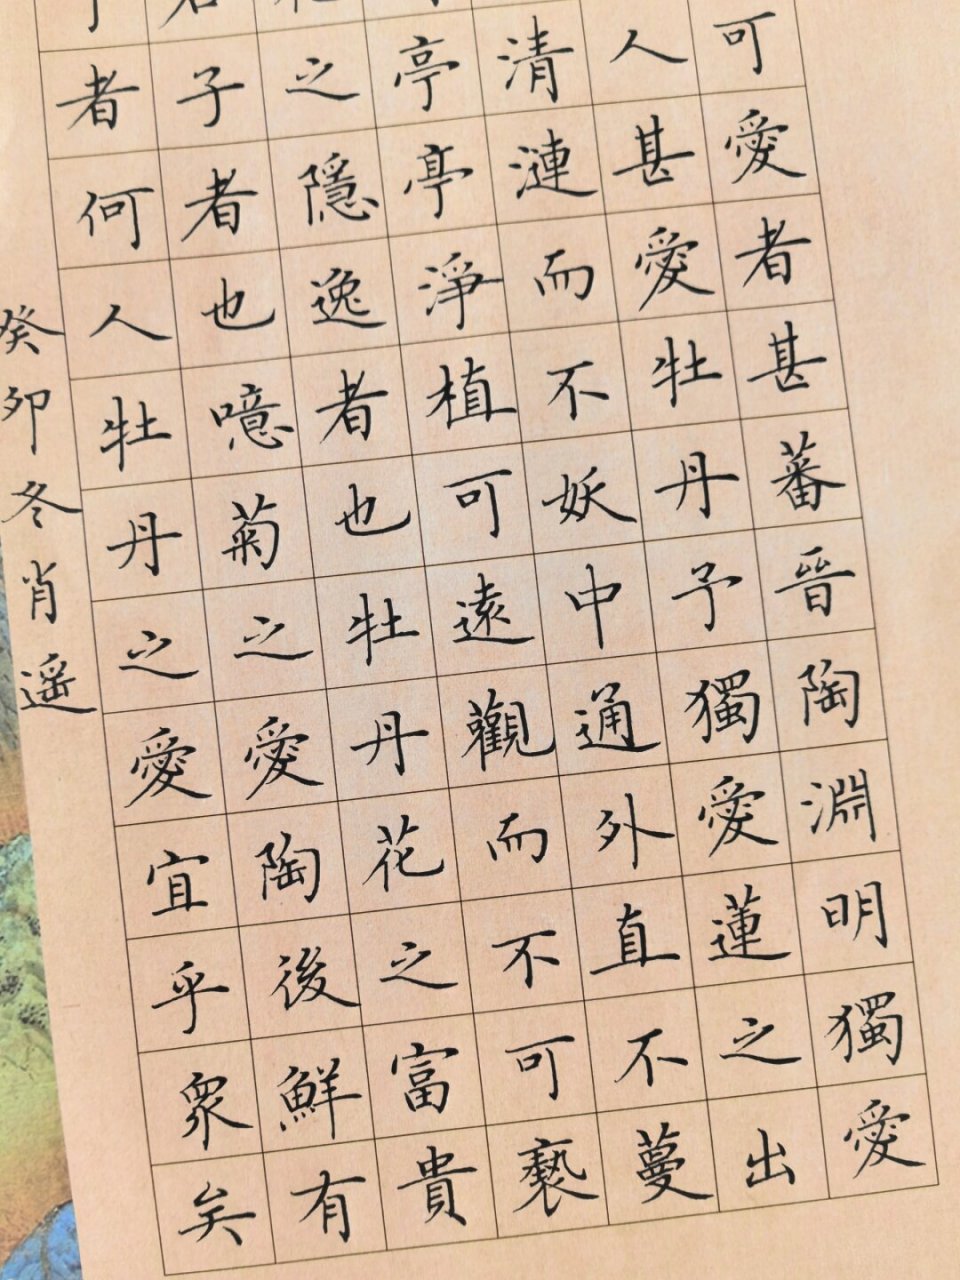 可愛者甚蕃晉陶淵明獨愛
人甚愛牡丹予獨愛蓮之出
清漣而不妖中通外直不蔓
亭亭淨植可遠觀而不可褻
之隱逸者也牡丹花之富貴
子者也噫菊之愛陶後鮮有
者何人牡丹之愛宜乎眾矣
癸卯冬肖遥